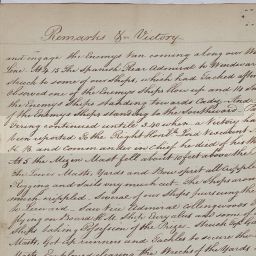 Remarks &c Victory
and engage the Enemys Van coming along our We
Line. At 4.15 The Spanish Rear Admiral to Windward
struck to some of our Ships, which had Tacked after
Observed one of the Enemys Ships blow up and 14 Sail
the Enemys Ships standing towards Cadiz. And
of the Enemys Ships standing to the Southward
Firing continued untill 4.30 when a Victory hav
been reported to the Right Honble Lord Viscount
K. B. and Commander in Chief he died of his Wo
At 5 the Mizen Mast fell about 10 feet above the
the Lower Masts, Yards and Bowsprit all crippled
Rigging and Sails very much cut. The Ships around
much crippled. Several of our Ships pursuing the
to Leeward. Saw Vice Admiral Collingwoods
flying on Board H. M. Ship Euryalus and some of
Ships taking Possession of the Prizes. Struck
Masts, Got up runners and Tackles to secure the
Masts. Employed clearing the Wrecks of the Yards